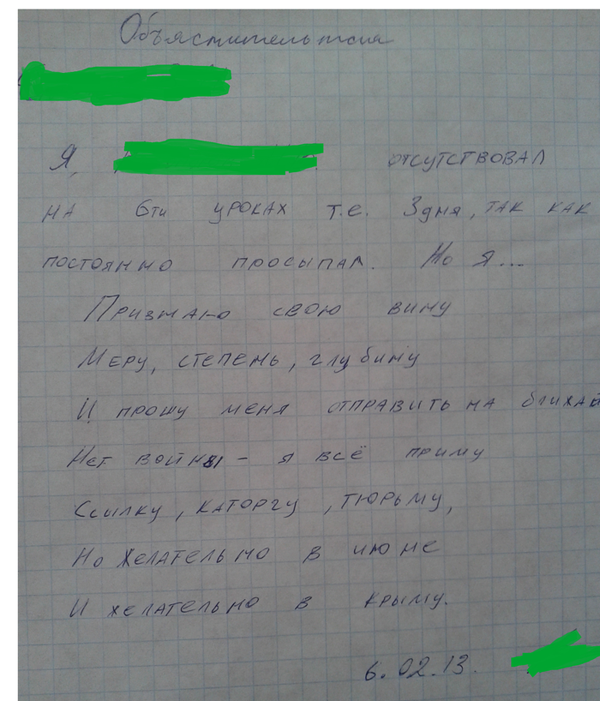 Объяснительная
Я, отсутствовал
на 6ти уроках т.е. 3 дня, так как
постоянно просыпал. Но я...
Признаю свою вину
Меру, степень, глубину
И прошу меня отправить на ближай
Нет войны - я всё приму
Ссылку, каторгу, тюрьму,
Но желательно в июне
И желательно в крыму.
6.02.13.